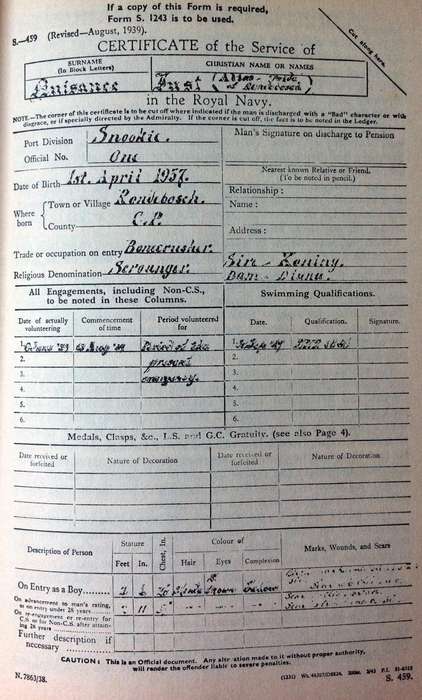 If a copy of this Form is required,
Form S. 1243 is to be used.
S.—459 (Revised—August, 1939).
Cut along here.
CERTIFICATE of the Service of
SURNAME
(In Block Letters)
CHRISTIAN NAME OR NAMES
Nuisance
Just
in the Royal Navy.
NOTE.—The corner of this certificate is to be cut off where indicated if the man is discharged with a "Bad" character or with
disgrace, or if specially directed by the Admiralty. If the corner is cut off, the fact is to be noted in the Ledger.
Port Division
Official No. One
Man's Signature on discharge to Pension
Nearest known Relative or Friend.
(To be noted in pencil.)
Date of Birth 1st. April 1937.
Relationship :
Where born
Town or Village Rondebosch.
County C.P.
Name :
Address :
Trade or occupation on entry Bonecrusher.
Religious Denomination Scrounger.
Sire - Koning.
Dam - Diana.
All Engagements, including Non-C.S.,
to be noted in these Columns.
Swimming Qualifications.
Date of actually
volunteering
Commencement
of time
Period volunteered
for
Date.
Qualification.
Signature.
1.
Period of the
present
emergency.
1.
2.
3.
4.
5.
6.
2.
3.
4.
5.
6.
Medals, Clasps, &c., L.S. and G.C. Gratuity. (see also Page 4).
Date received or
forfeited
Nature of Decoration
Date received or
forfeited
Nature of Decoration
Description of Person
Stature
Feet
In.
Chest, In.
Colour of
Hair
Eyes
Complexion
Marks, Wounds, and Scars
On Entry as a Boy
Brown
On advancement to man's rating,
or on entry under 28 years
On re-engagement or re-entry for
C.S. or for Non-C.S. after attain-
ing 28 years
Further description if
necessary
CAUTION : This is an Official document. Any alteration made to it without proper authority,
will render the offender liable to severe penalties.
N. 7863/38.
S. 459.